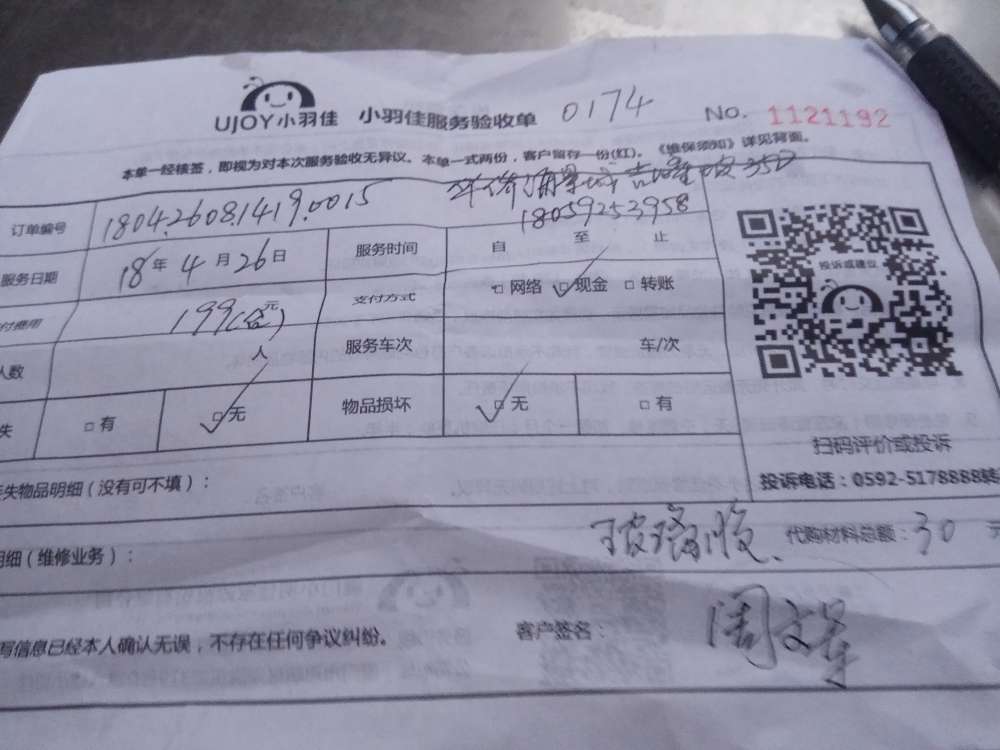 UJOY小羽佳 小羽佳服务验收单 0174 No. 1121192
本单一经核签，即视为对本次服务验收无异议。本单一式两份，客户留存一份(红)。《维保须知》详见背面。
订单编号 180426081419.0015 35D
18059253958
服务日期 18年4月26日 服务时间 自 至 止
付费用 199( )元 支付方式 □网络 □现金 □转账
人数 人 服务车次 车/次
失 □有 □无 物品损坏 □无 □有
投诉或建议
扫码评价或投诉
投诉电话：0592-5178888转
失物品明细（没有可不填）：
明细（维修业务）： 玻璃胶、 代购材料总额：30 元
写信息已经本人确认无误，不存在任何争议纠纷。 客户签名：